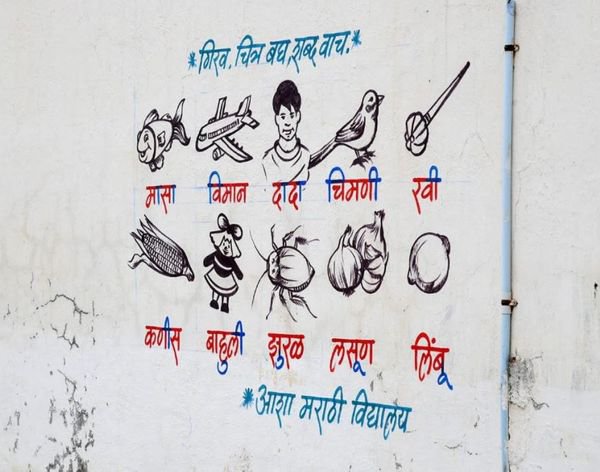 *गिरव, चित्र बघ, शब्द वाच.*
मासा विमान दादा चिमणी रवी
कणीस बाहुली झुरळ लसूण लिंबू
*आशा मराठी विद्यालय